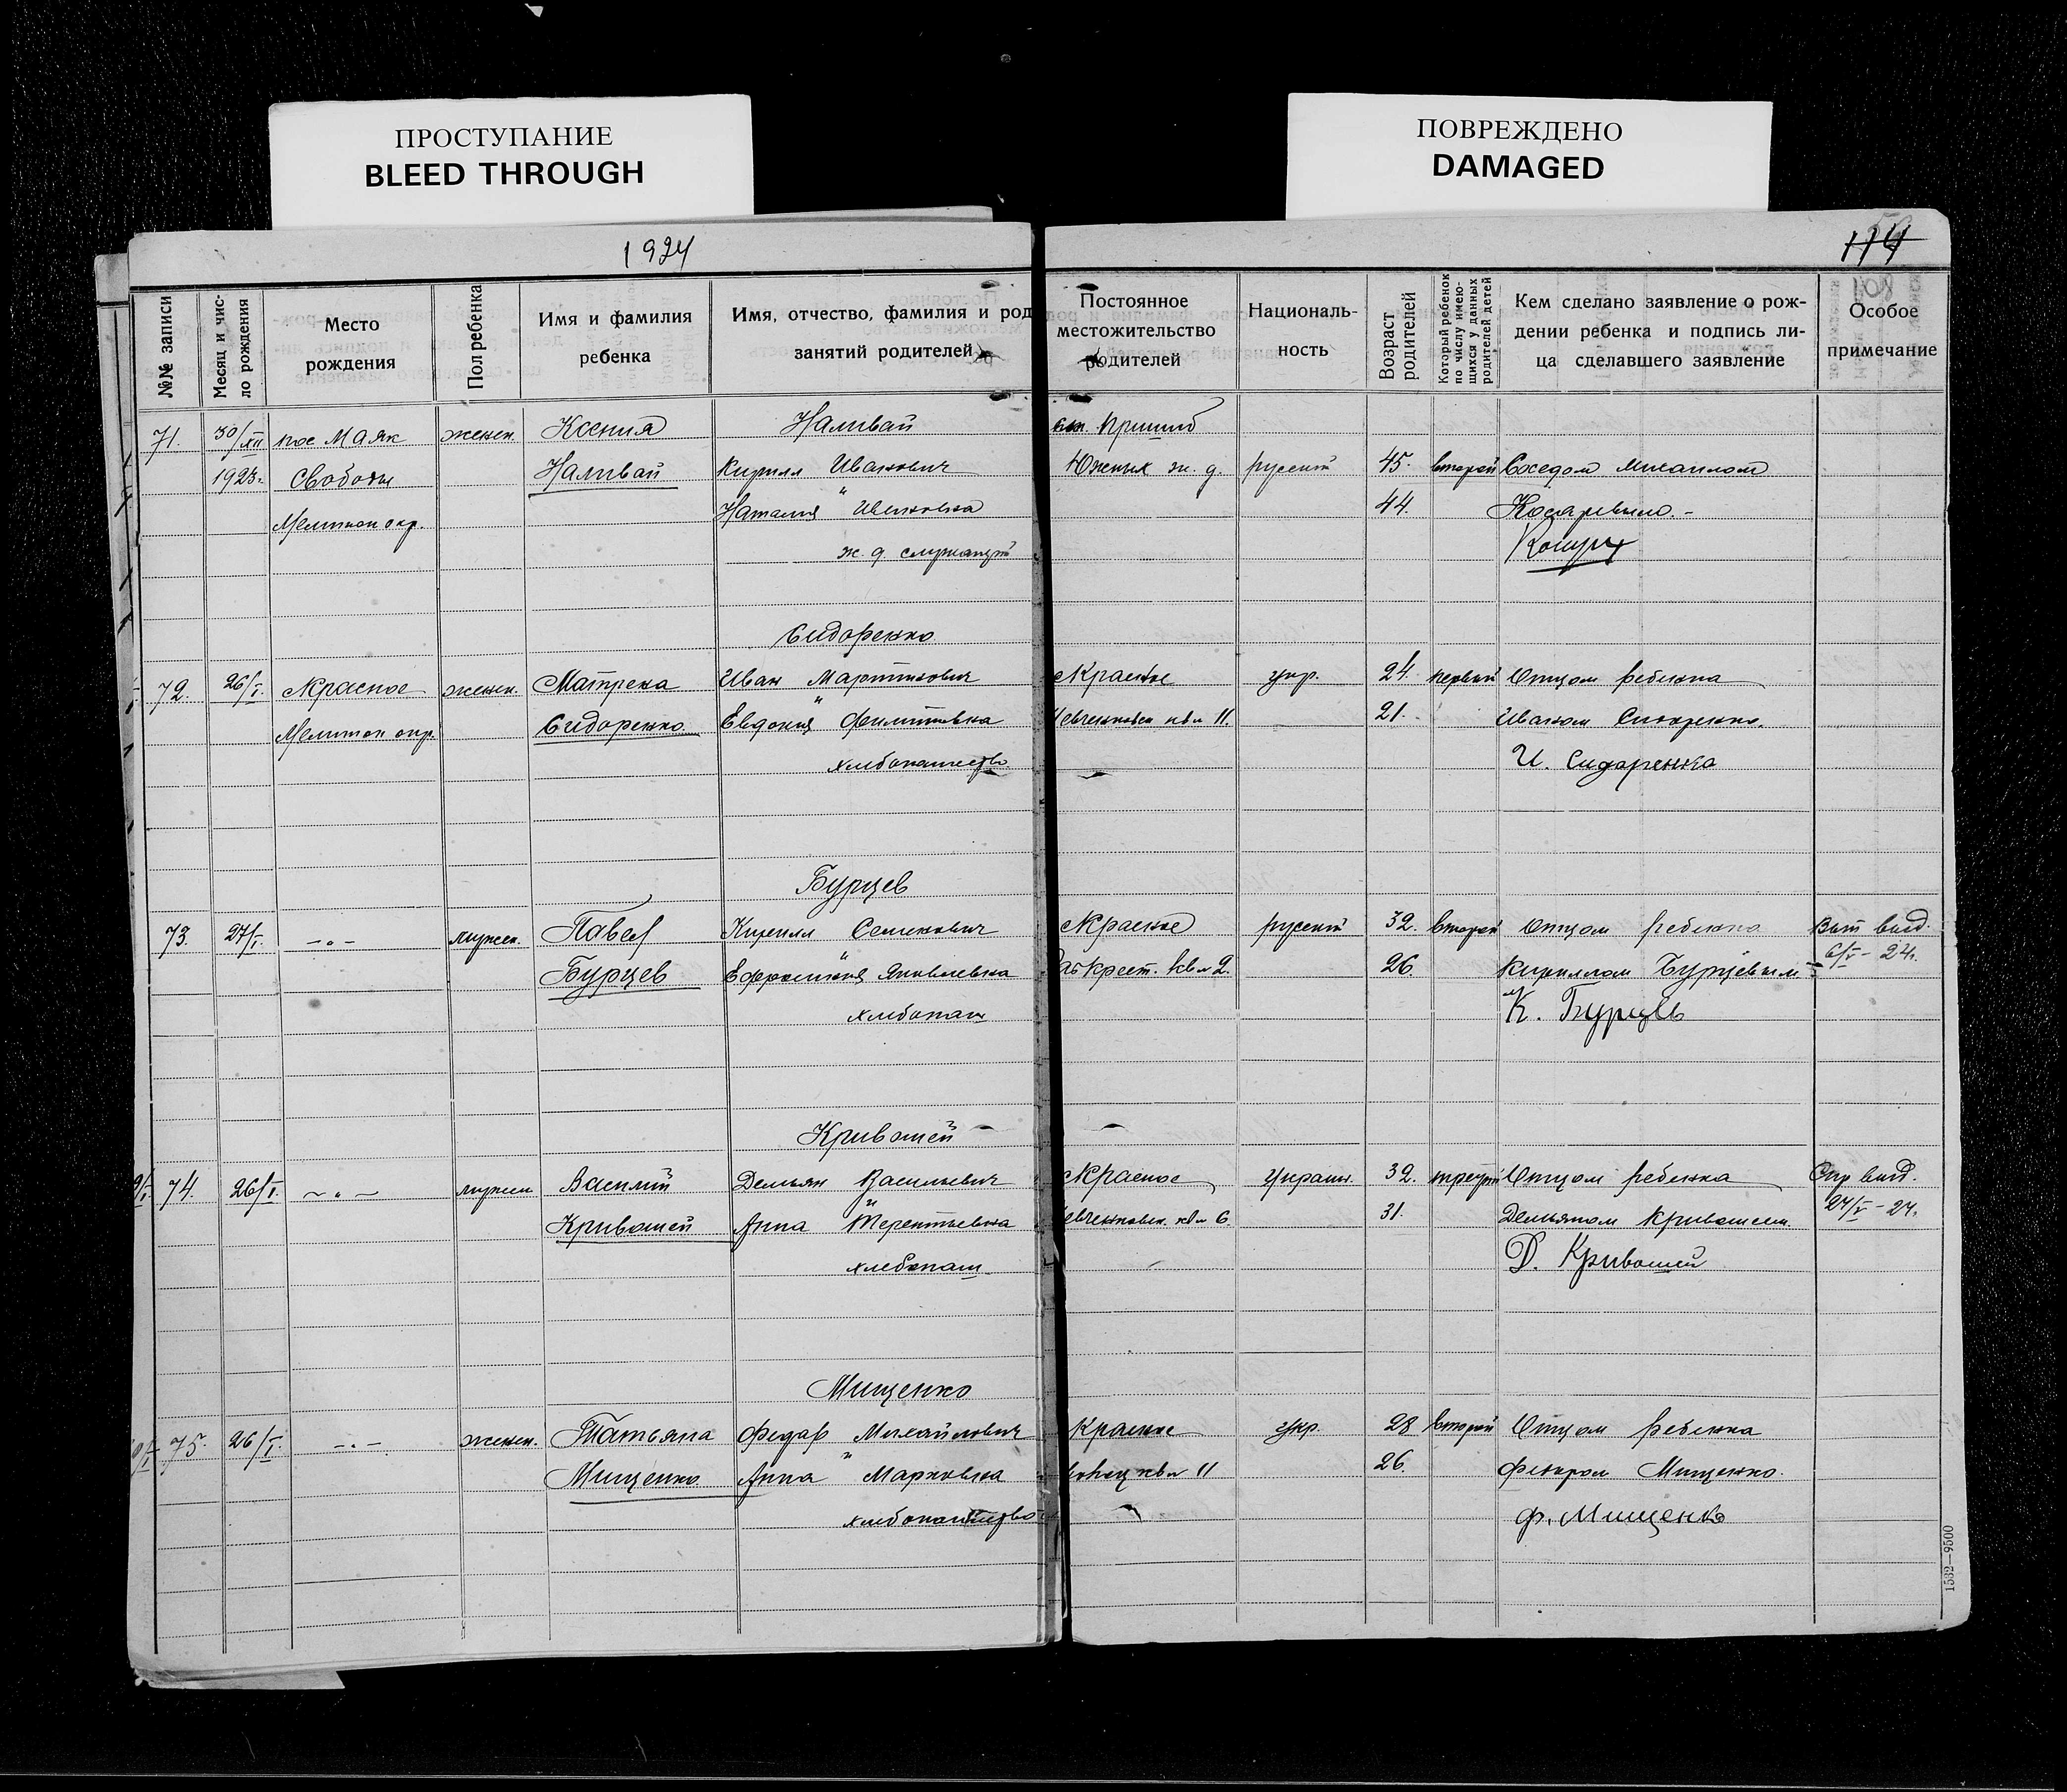 ПРОСТУПАНИЕ
BLEED THROUGH
ПОВРЕЖДЕНО
DAMAGED
1924
114
№№ записи
Месяц и число рождения
Место рождения
Пол ребенка
Имя и фамилия ребенка
Имя, отчество, фамилия и род занятий родителей
Постоянное местожительство родителей
Националь-ность
Возраст родителей
Который ребенок по числу имеющихся у данных родителей детей
Кем сделано заявление о рождении ребенка и подпись лица сделавшего заявление
Особое примечание
71. 30/XII пос Маяк женск. Ксения Наливай ст. Пришиб
1923г. Свободы Наливай Кирилл Иванович Южных ж. д. русский 45. второй Соседом Михаилом
Мелитоп окр. Наталия " Ивановна 44.
ж. д. служащий
Сидоренко
72. 26/I. с Красное женск. Матрена Иван Мартинович с Красное укр. 24. первый Отцом ребенка
Мелитоп окр. Сидоренко Евдокия " Филиповна кв № 11. 21. Иваном Сидоренко.
хлебопашество И. Сидаренка
Бурцев
73. 27/I. -"- мужск. Павел Кирилл Семенович с Красное русский 32. второй Отцом ребенка
Бурцев Ефросиния " Яковлевна Крест. кв № 2. 26. Кириллом Бурцевым 6/V - 24г.
хлебопаш К. Бурцев
Кривошей
74. 26/I. -"- мужск Василий Демьян Васильевич с Красное Украин. 32. третий Отцом ребенка Спр выд.
Кривошей Анна " Терентьевна кв № 6. 31. Демьяном Кривошеем. 24/V - 24.
хлебопаш Д. Кривошей
Мищенко
75. 26/I. -"- женск. Татьяна Федор Михайлович Красное укр. 28 второй Отцом ребенка
Мищенко Анна " Марковна кв № 11 26. Федором Мищенко.
хлебопашество Ф. Мищенко
1532—9500